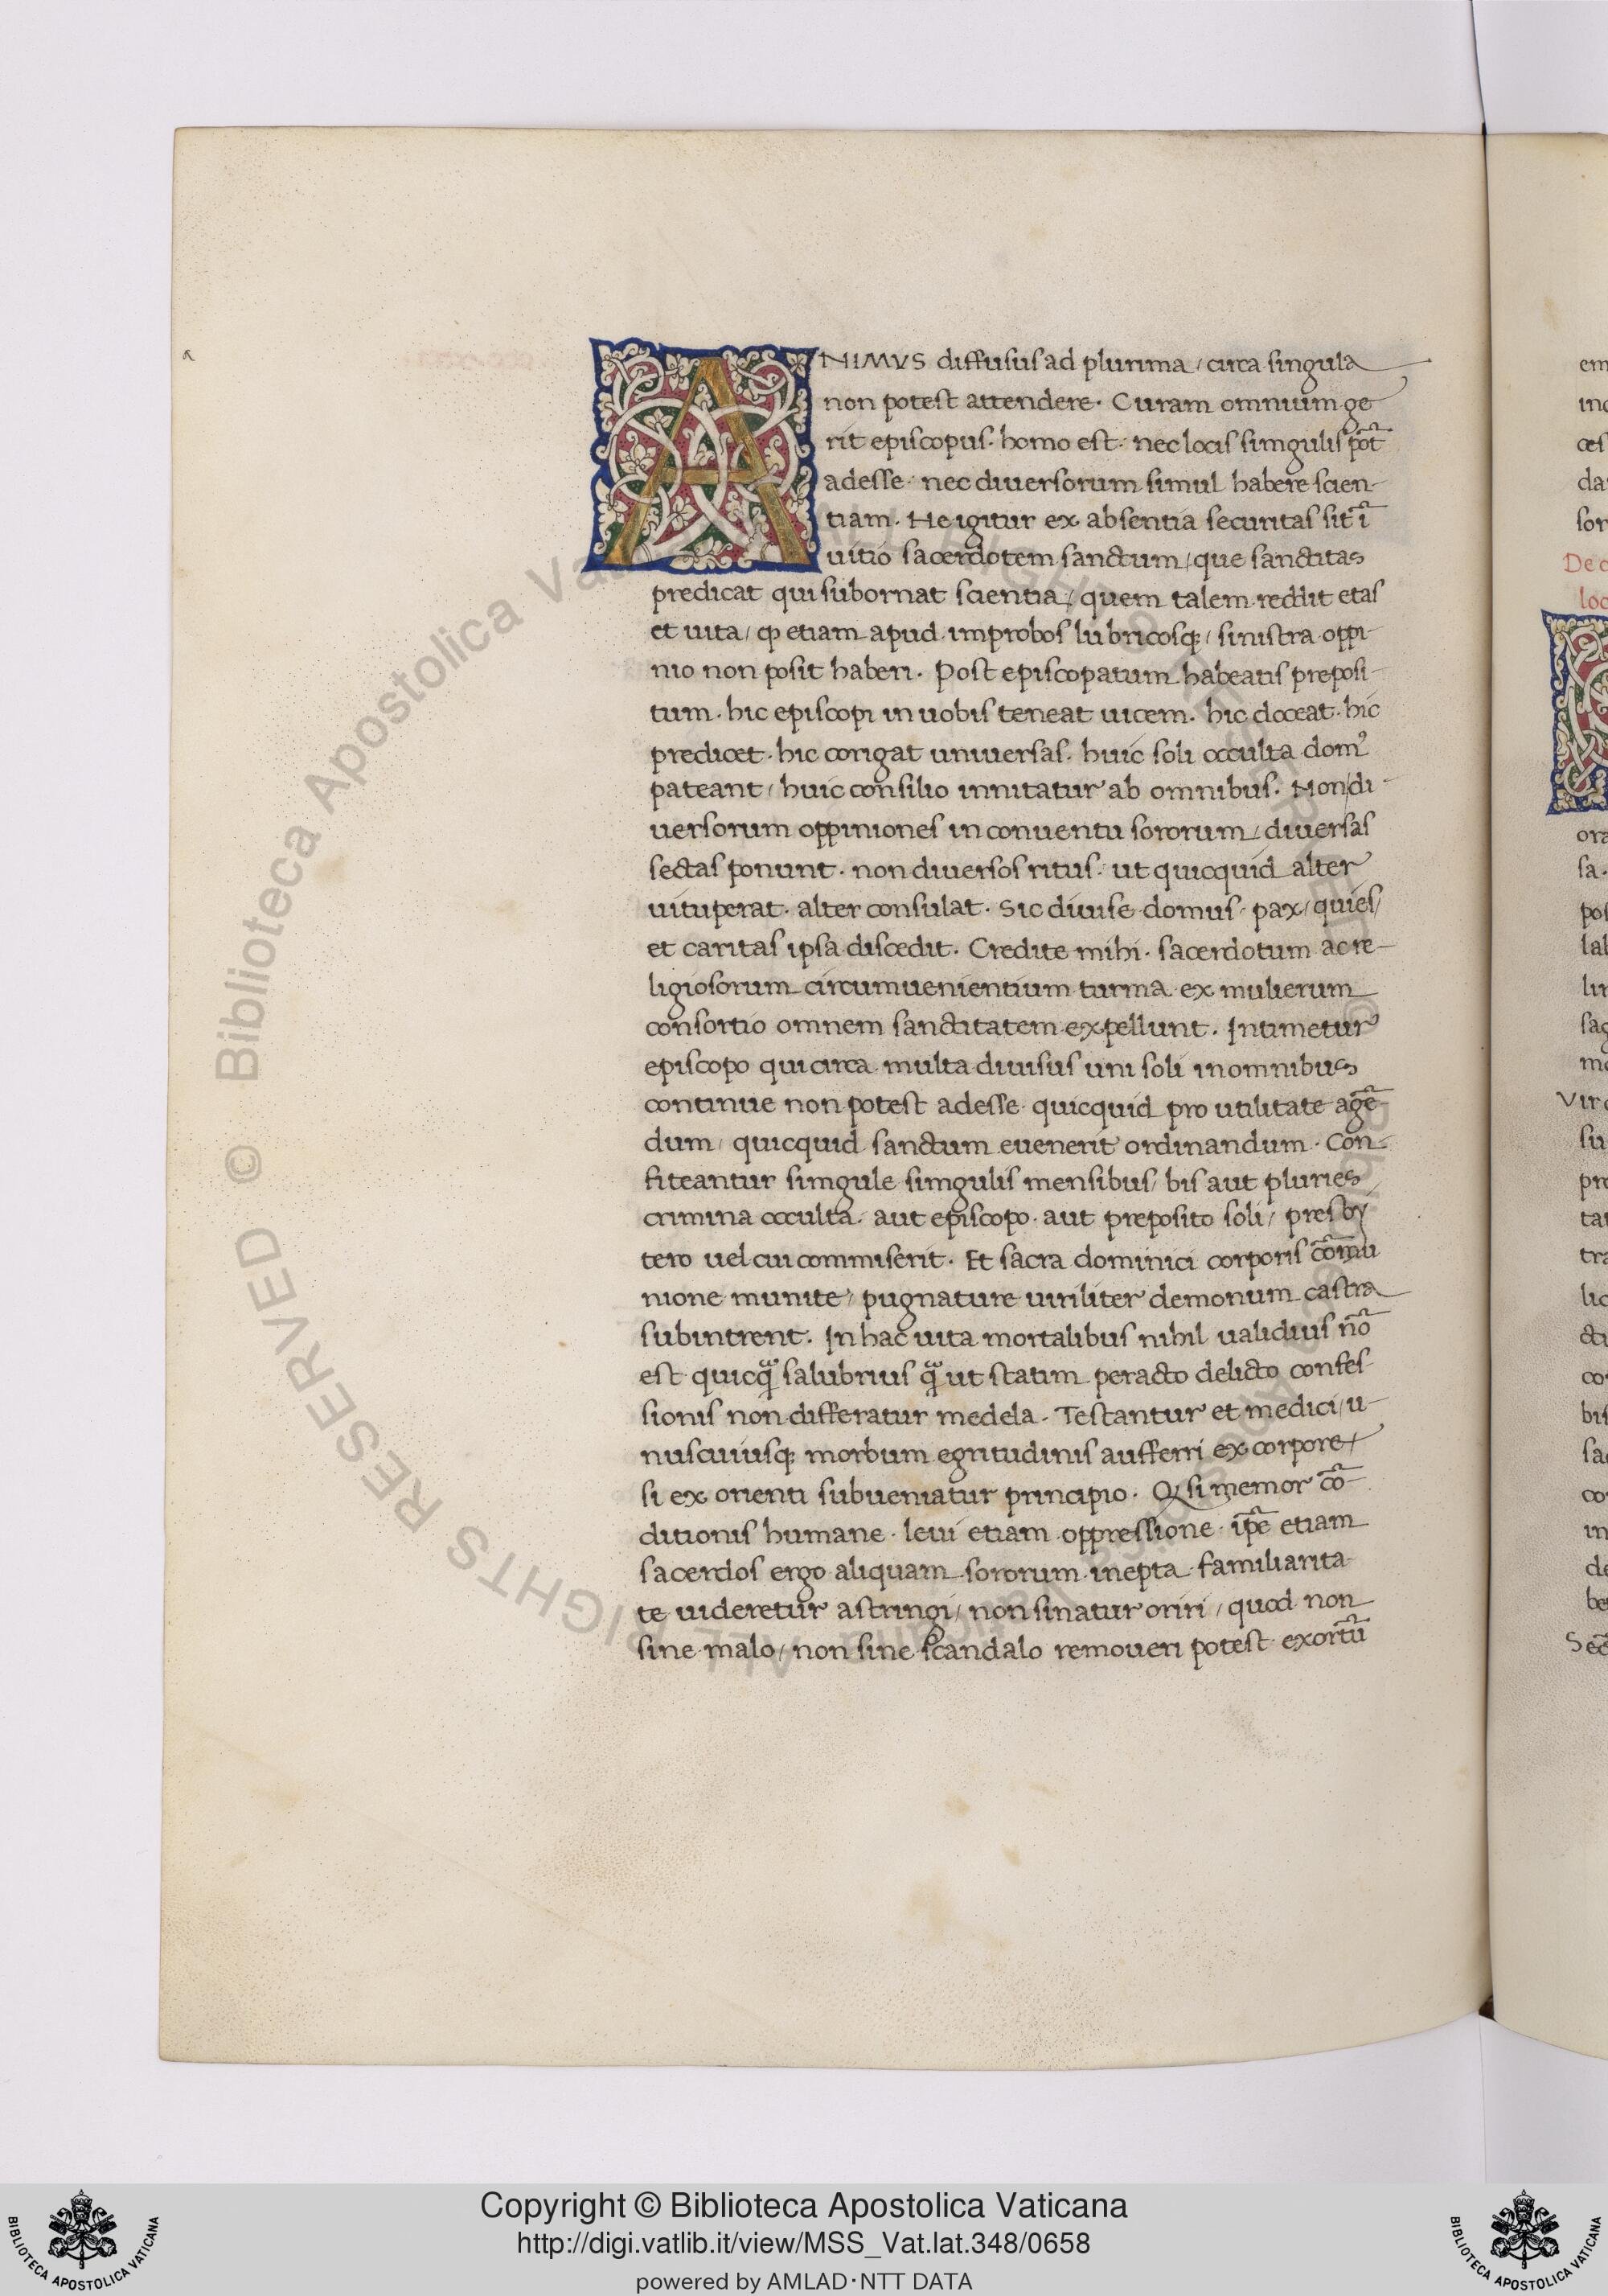 ANIMVS diffusus ad plurima / circa singula
non potest attendere. Curam omnium ge
rit episcopus. homo est. nec locis simgulis pōt
adesse. nec diuersorum simul habere scien-
tiam. Ne igitur ex absentia securitas sit ī
uitio sacerdotem sanctum / que sanctitas
predicat qui subornat scientia / quem talem reddit etas
et uita / ꝙ etiam apud improbos lubricosq; / sinistra oppi-
nio non posit haberi. Post episcopatum habeatis preposi-
tum. hic episcopi in uobis teneat uicem. hic doceat. hic
predicet. hic corigat uniuersas. huic soli occulta domꝰ
pateant / huic consilio innitatur ab omnibus. Non di-
uersorum oppiniones in conuentu sororum / diuersas
sectas ponunt. non diuersos ritus. ut quicquid alter
uituperat. alter consulat. Sic diuise domus. pax / quies /
et caritas ipsa discedit. Credite mihi. sacerdotum ac re-
ligiosorum circumuenientium turma ex mulierum
consortio omnem sanctitatem expellunt. Intimetur
episcopo qui circa multa diuisus uni soli in omnibus
continue non potest adesse quicquid pro utilitate agē-
dum / quicquid sanctum euenerit ordinandum. Con-
fiteantur simgule simgulis mensibus / bis aut pluries
crimina occulta. aut episcopo. aut preposito soli / presby
tero uel cui commiserit. Et sacra dominici corporis cōmu
nione munite / pugnature uiriliter demonum castra
subintrent. In hac uita mortalibus nihil ualidius nō
est quicq̃ salubrius q̃ ut statim peracto delicto confes-
sionis non differatur medela. Testantur et medici / u-
nuscuiusq; morbum egritudinis aufferri ex corpore /
si ex orienti subueniatur principio. Q si memor cō-
ditionis humane. leui etiam oppressione. ip̄e etiam
sacerdos ergo aliquam sororum inepta familiarita
te uideretur astringi / non sinatur oriri / quod non
sine malo / non sine scandalo remoueri potest exortū
De
loc
Copyright © Biblioteca Apostolica Vaticana
http://digi.vatlib.it/view/MSS_Vat.lat.348/0658
powered by AMLAD·NTT DATA
BIBLIOTECA APOSTOLICA VATICANA
BIBLIOTECA APOSTOLICA VATICANA